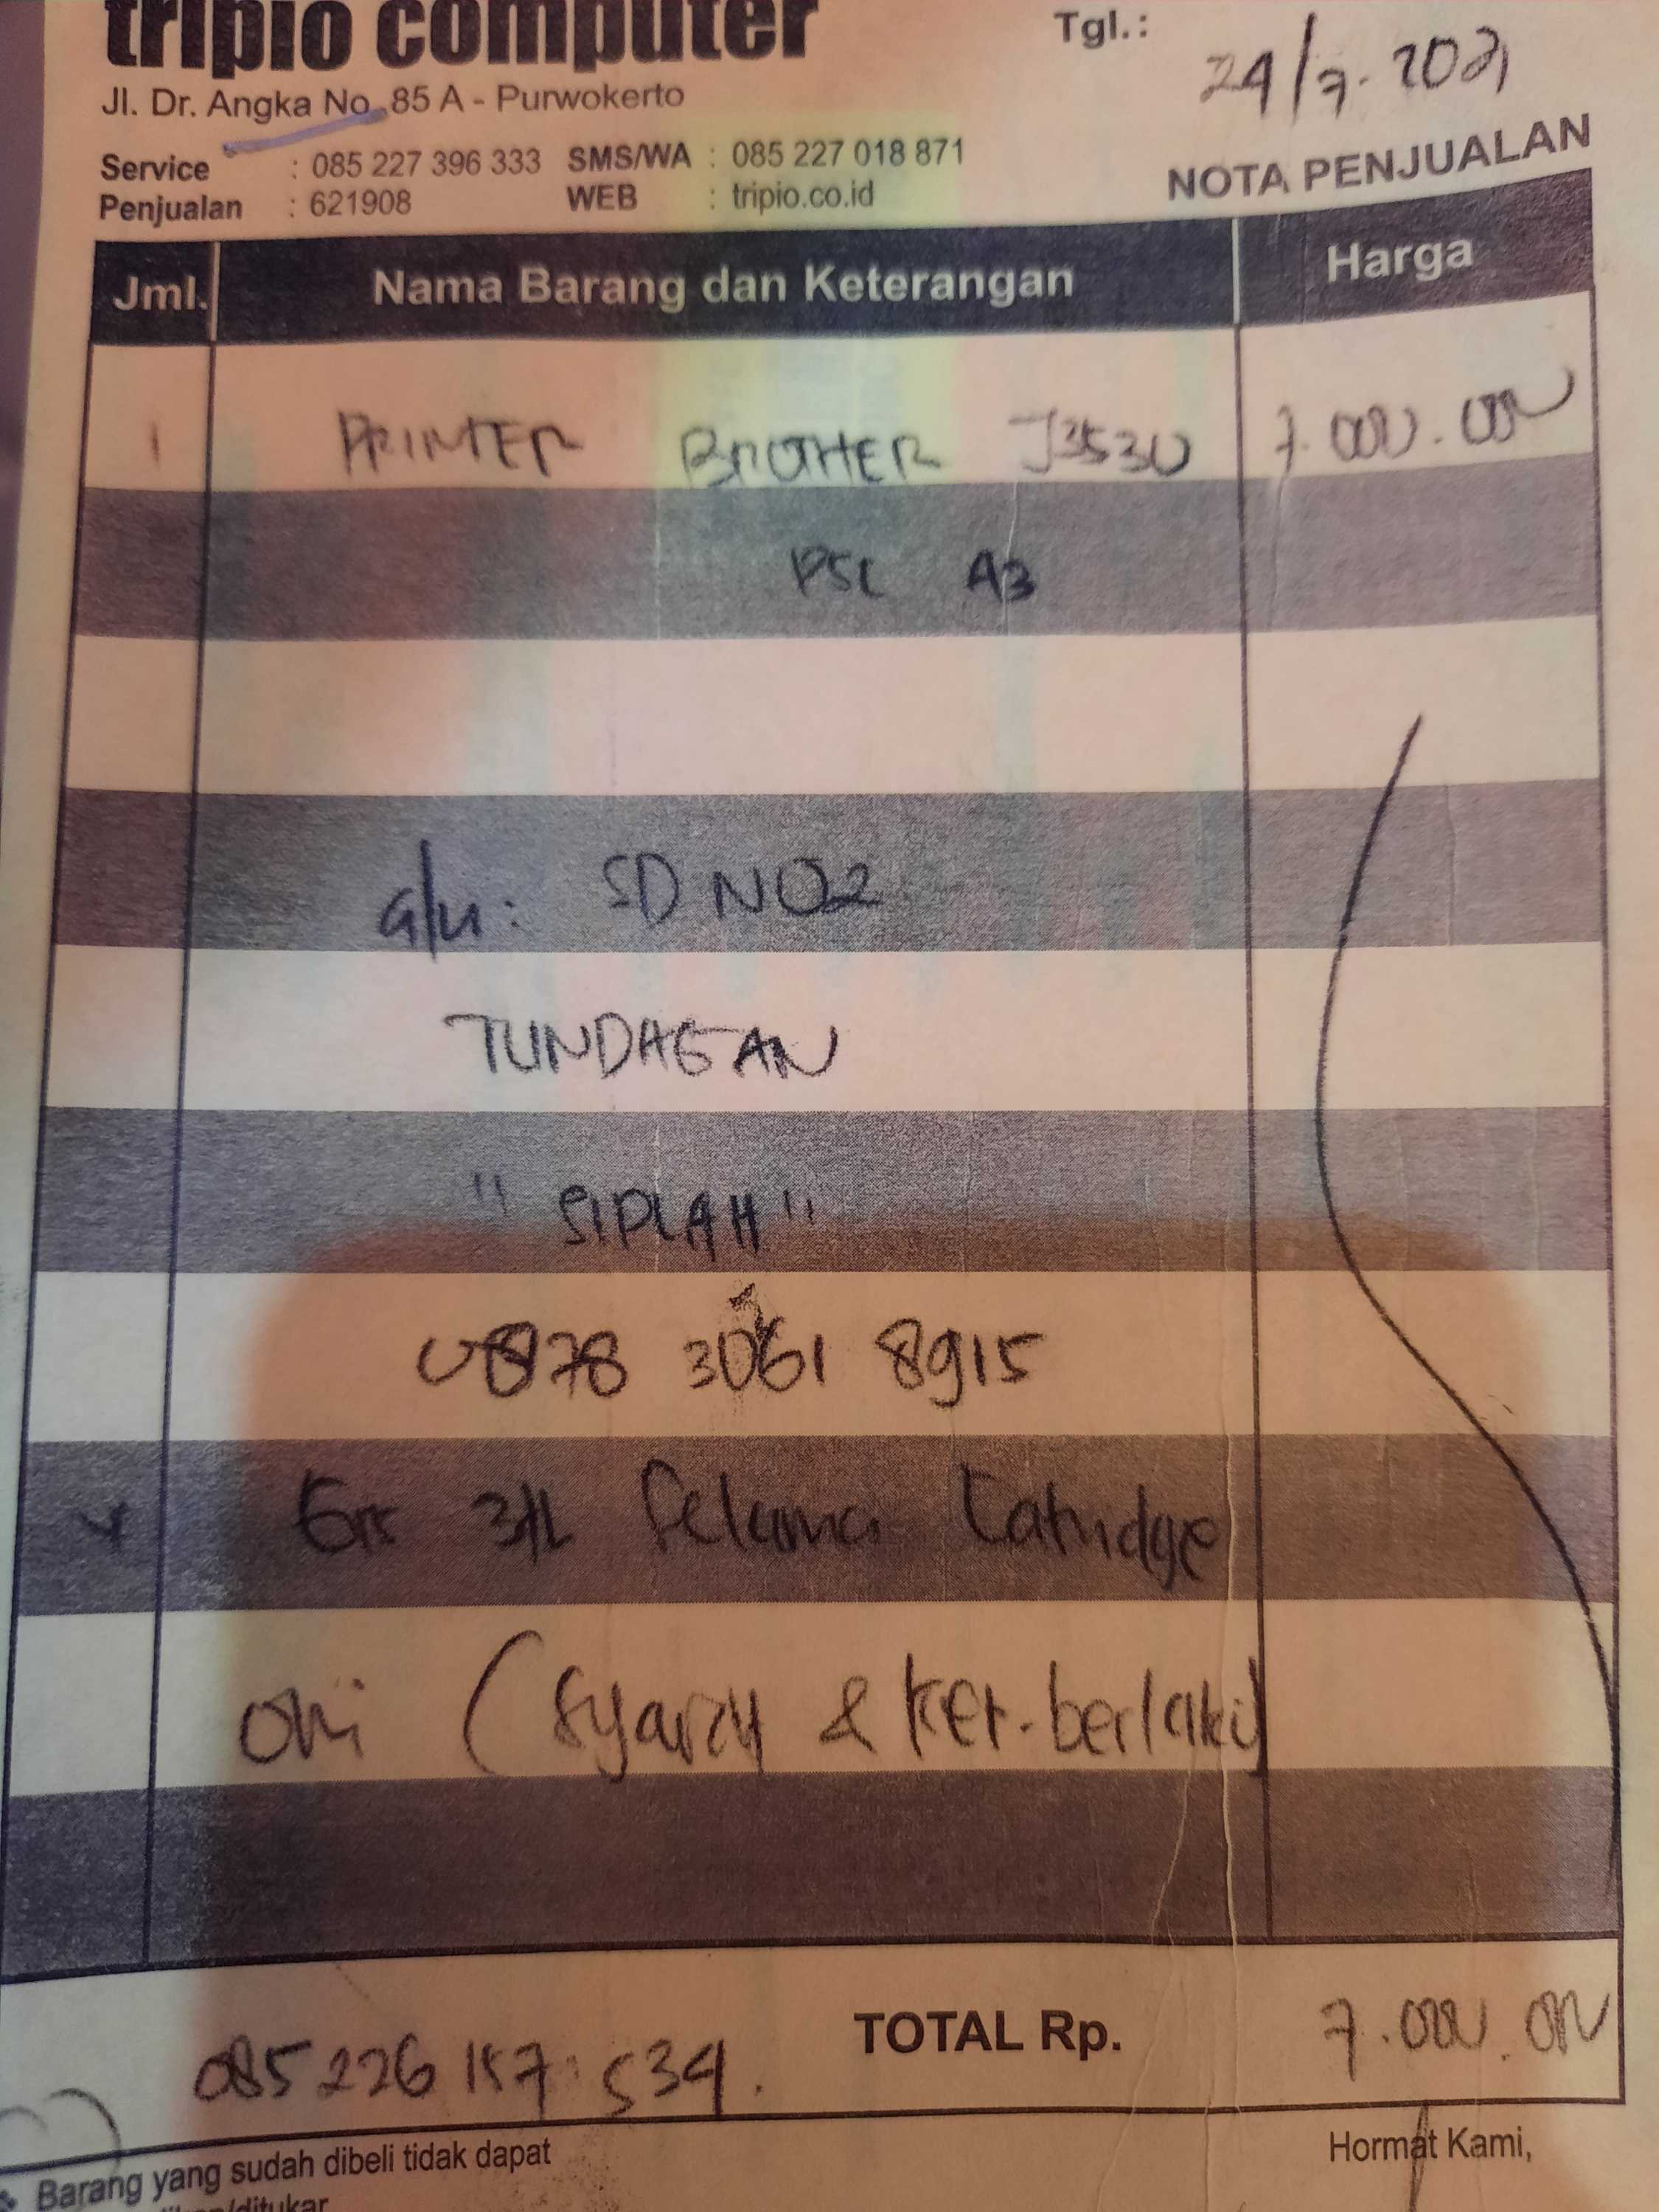 tripio computer
Tgl.: 24/7.2021
Jl. Dr. Angka No. 85 A - Purwokerto
Service : 085 227 396 333 SMS/WA : 085 227 018 871
Penjualan : 621908 WEB : tripio.co.id
NOTA PENJUALAN
Jml. Nama Barang dan Keterangan Harga
1 PRINTER BROTHER J3530 7.000.000
A3
a/n: SD N02
TUNDAGAN
"SIPLAH"
0878 3061 8915
3th Selama Catridge
Ori (Syarat & Ket. berlaku)
TOTAL Rp. 7.000.000
085 226 187 534.
Hormat Kami,
Barang yang sudah dibeli tidak dapat
/ditukar